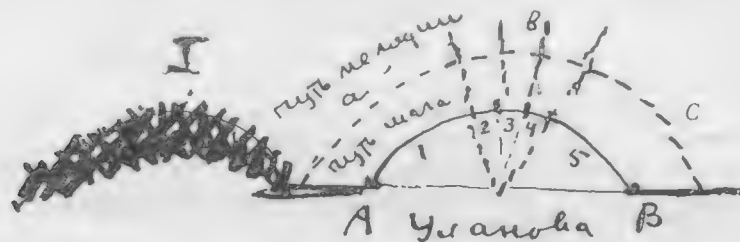 I
путь мелодии
в
а
путь шага
с
1 2 3 4 5
А Уланова В